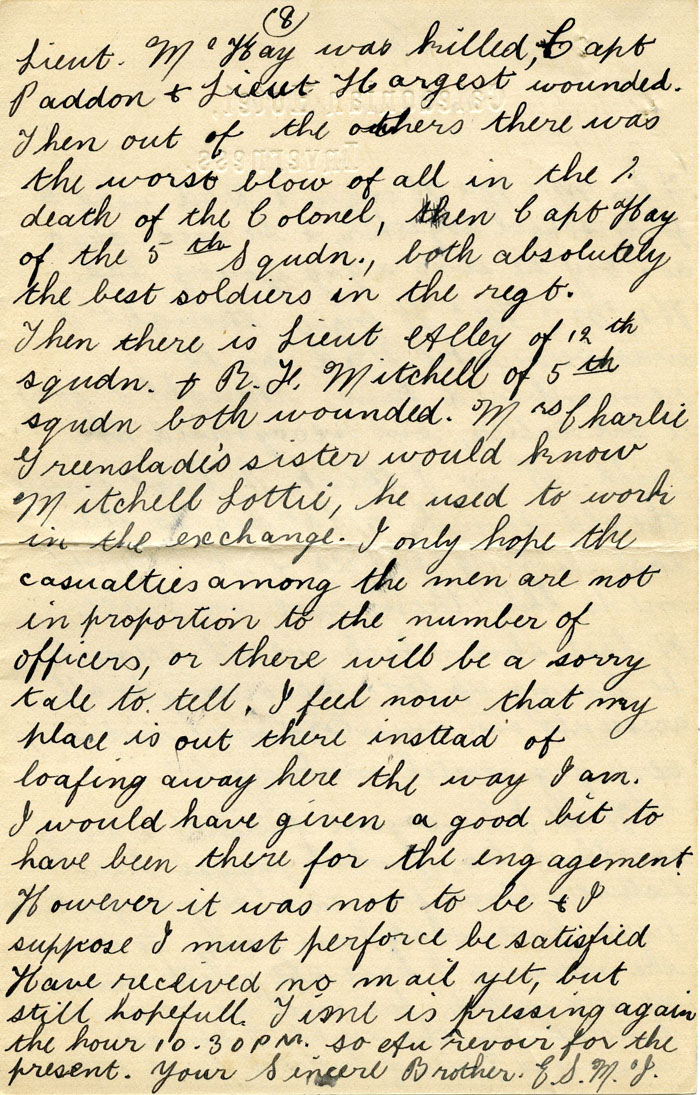 (8)
Lieut. McHay was killed, Capt
Paddon & Lieut Hargest wounded.
Then out of the others there was
the worst blow of all in the
death of the Colonel, then Capt Hay
of the 5th Squdn., both absolutely
the best soldiers in the regt.
Then there is Lieut Alley of 12th
squdn. & R. H. Mitchell of 5th
squdn both wounded. Mrs Charlie
Greenslade's sister would know
Mitchell Lottie, he used to work
in the exchange. I only hope the
casualties among the men are not
in proportion to the number of
officers, or there will be a sorry
tale to tell, I feel now that my
place is out there instead of
loafing away here the way I am.
I would have given a good bit to
have been there for the engagement.
However it was not to be & I
suppose I must perforce be satisfied
Have received no mail yet, but
still hopefull. Time is pressing again
the hour 10.30 PM. so Au revoir for the
present. Your Sincere Brother. E.S.McJ.